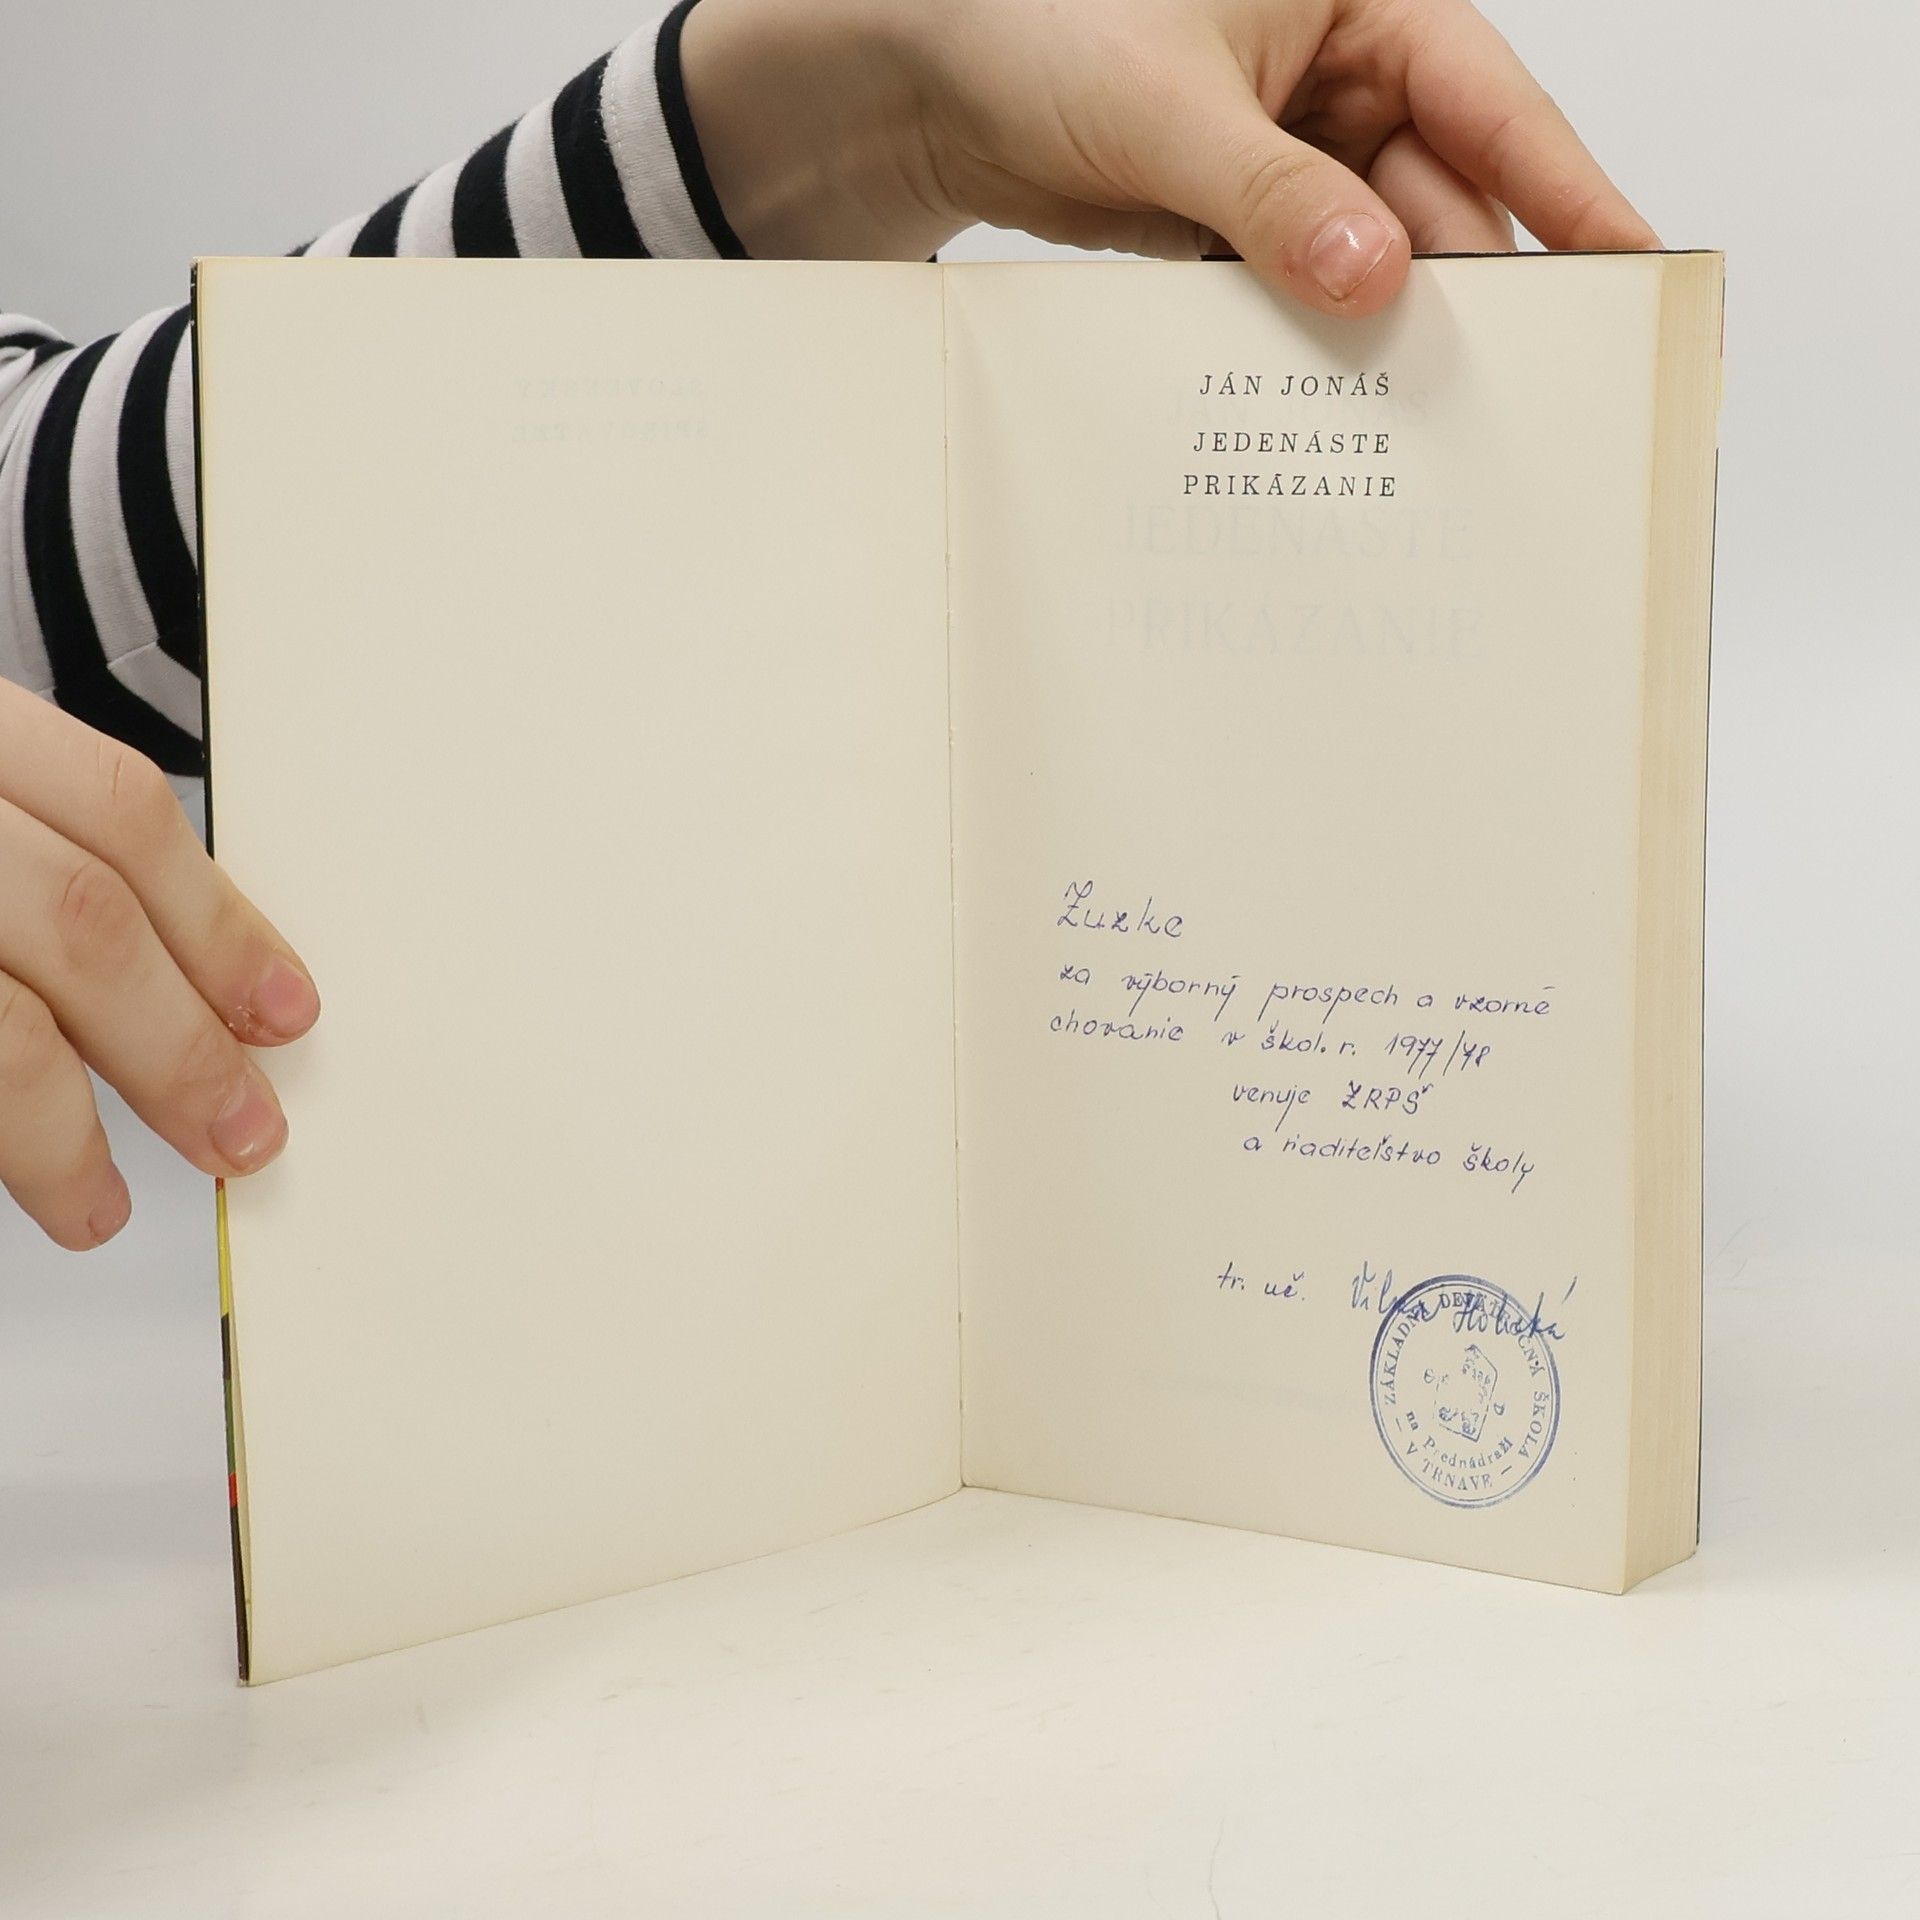 JÁN JONÁŠ
JEDENÁSTE
PRIKÁZANIE
Zuzke
za výborný prospech a vzorné
chovanie v škol. r. 1977/78
venuje ZRPŠ
a riaditeľstvo školy
tr. uč.
ZÁKLADNÁ DEVÄŤROČNÁ ŠKOLA
na Prednádraží
— V TRNAVE —